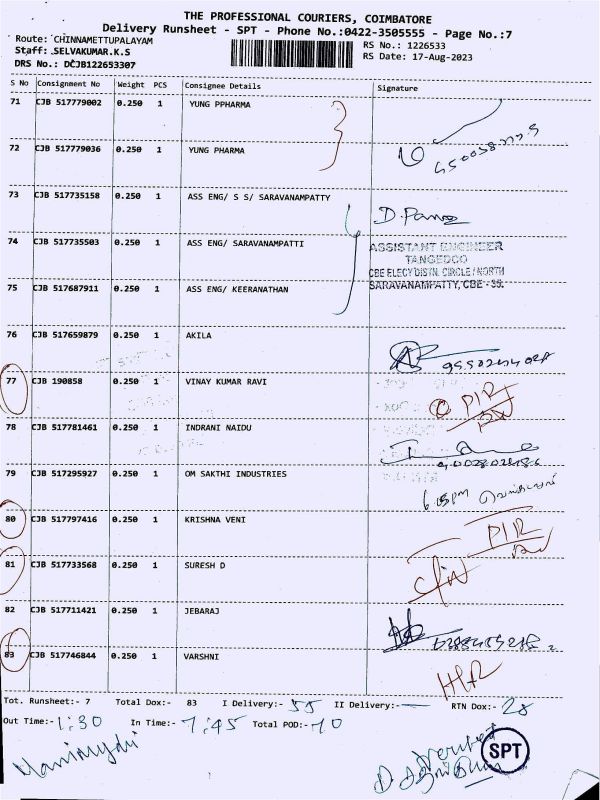 THE PROFESSIONAL COURIERS, COIMBATORE
Delivery Runsheet - SPT - Phone No.:0422-3505555 - Page No.:7
Route: CHINNAMETTUPALAYAM
Staff: SELVAKUMAR.K.S
DRS No.: DCJB122653307
RS No.: 1226533
RS Date: 17-Aug-2023
S No Consignment No Weight PCS Consignee Details Signature
71 CJB 517779002 0.250 1 YUNG PPHARMA
72 CJB 517779036 0.250 1 YUNG PHARMA
73 CJB 517735158 0.250 1 ASS ENG/ S S/ SARAVANAMPATTY
74 CJB 517735503 0.250 1 ASS ENG/ SARAVANAMPATTI
ASSISTANT ENGINEER
TANGEDCO
CBE ELECY DISTN. CIRCLE / NORTH
SARAVANAMPATTY, CBE - 35.
75 CJB 517687911 0.250 1 ASS ENG/ KEERANATHAN
76 CJB 517659879 0.250 1 AKILA
77 CJB 190858 0.250 1 VINAY KUMAR RAVI
78 CJB 517781461 0.250 1 INDRANI NAIDU
79 CJB 517295927 0.250 1 OM SAKTHI INDUSTRIES
80 CJB 517797416 0.250 1 KRISHNA VENI
81 CJB 517733568 0.250 1 SURESH D
82 CJB 517711421 0.250 1 JEBARAJ
83 CJB 517746844 0.250 1 VARSHNI
Tot. Runsheet:- 7 Total Dox:- 83 I Delivery:- 55 II Delivery:- — RTN Dox:- 28
Out Time:- 1:30 In Time:- 7:45 Total POD:- 70
SPT